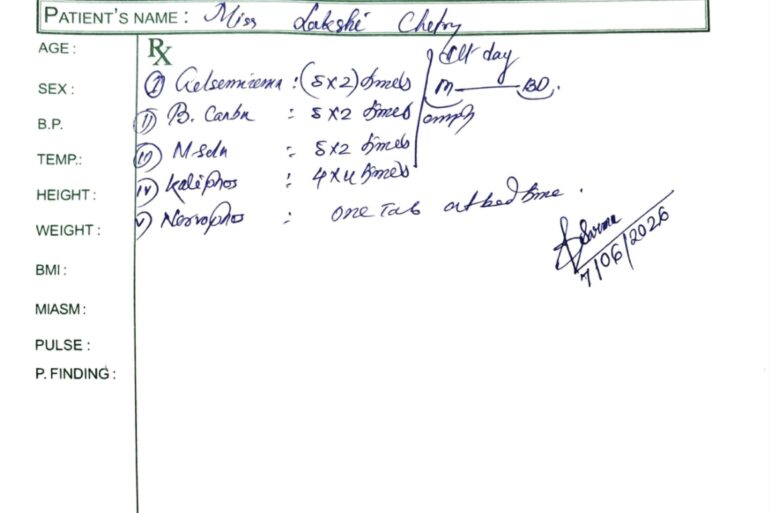 PATIENT'S NAME : Miss Lakshi Chetry
AGE :
SEX :
B.P.
TEMP.:
HEIGHT :
WEIGHT :
BMI :
MIASM :
PULSE :
P. FINDING :
Rx
(I) Gelsemiema : (5 x 2) times
II) B. Carbu : 5 x 2 times
III) M-Solu : 5 x 2 times
IV) Kaliphos : 4 x 4 times
V) Nervophos : one Tab at bed time .
Alt day
M — BD.
Sarma
7/06/2026